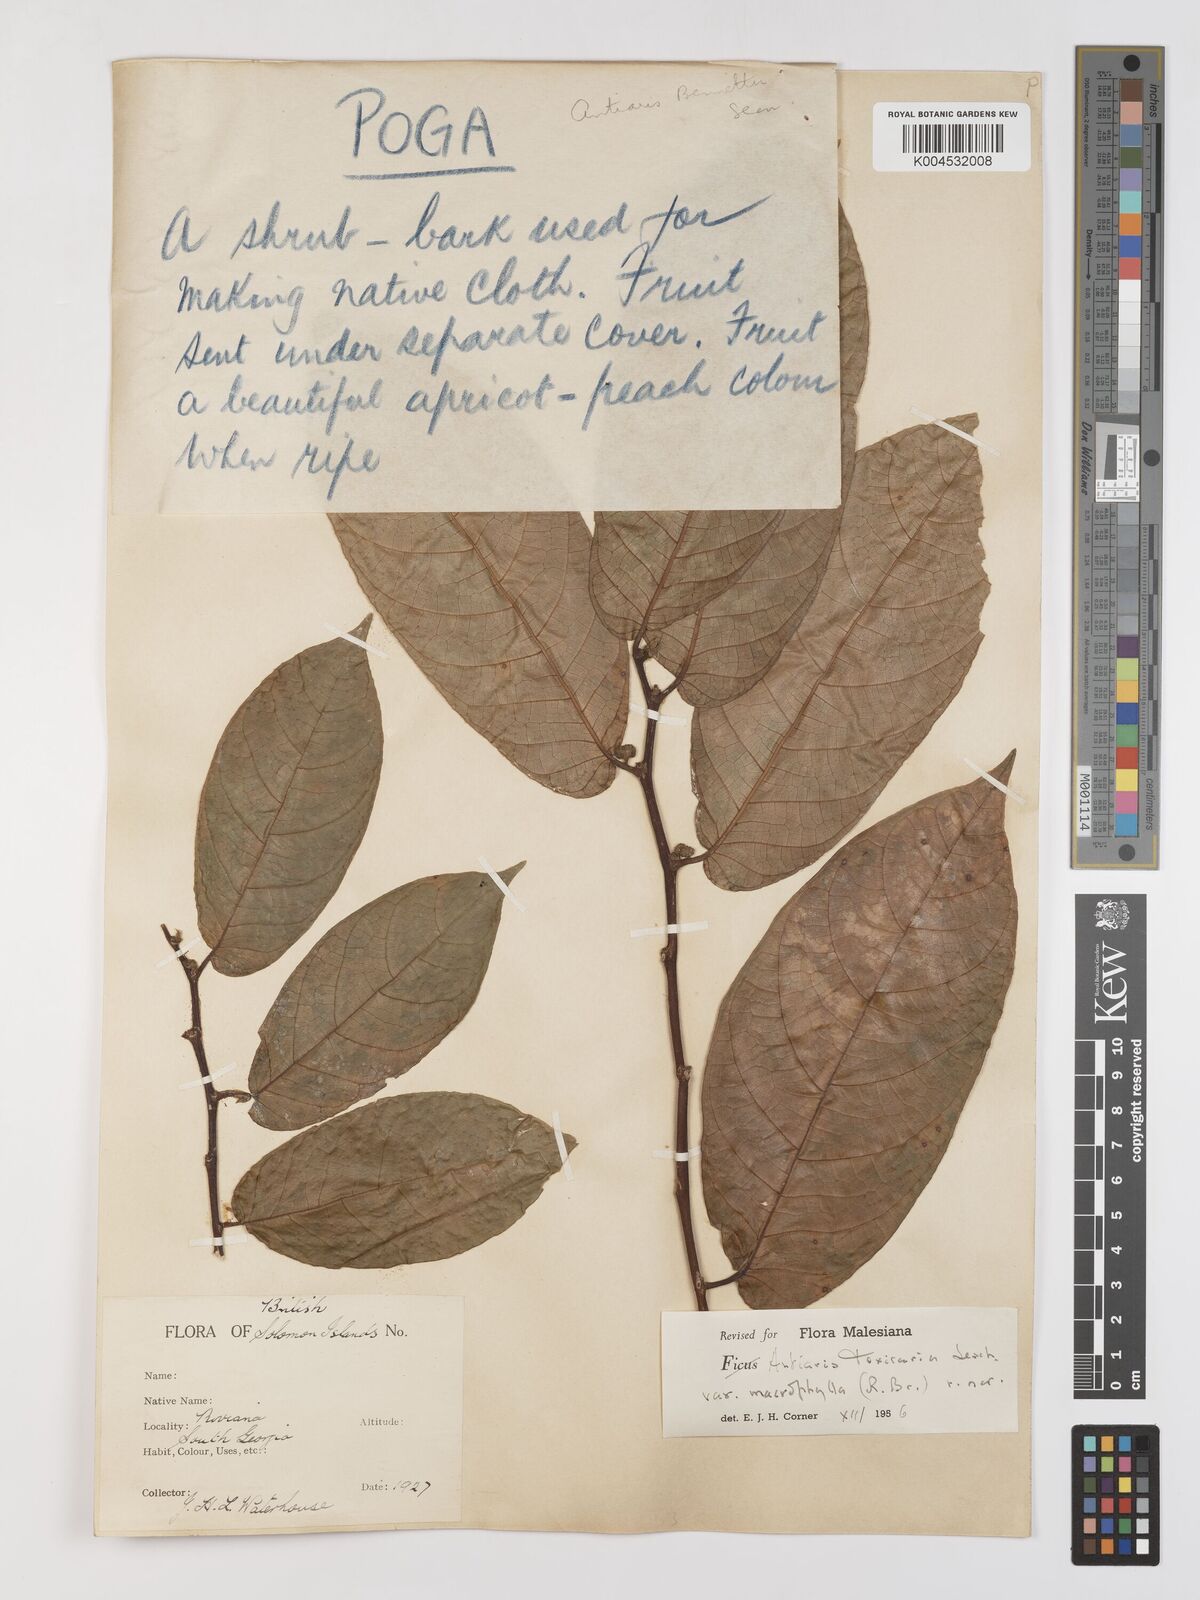 Antiaris Bennettii
Seem.
POGA
A shrub – bark used for
making native cloth. Fruit
sent under separate cover. Fruit
a beautiful apricot – peach colour
when ripe
ROYAL BOTANIC GARDENS KEW
K004532008
British
FLORA OF Solomon Islands No.
Name:
Native Name:
Locality: Roviana Altitude:
South Georgia
Habit, Colour, Uses, etc:
Collector: Date: 1927
J. H. L. Waterhouse
Revised for Flora Malesiana
Ficus Antiaris toxicaria Lesch.
var. macrophylla (R. Br.)
det. E. J. H. Corner XII/ 1956
inches
Don Williams
M001114
centimeters
Kew
Royal Botanic Gardens
copyright reserved
0 1 2 3 4 5 6 7 8 9 10
cm